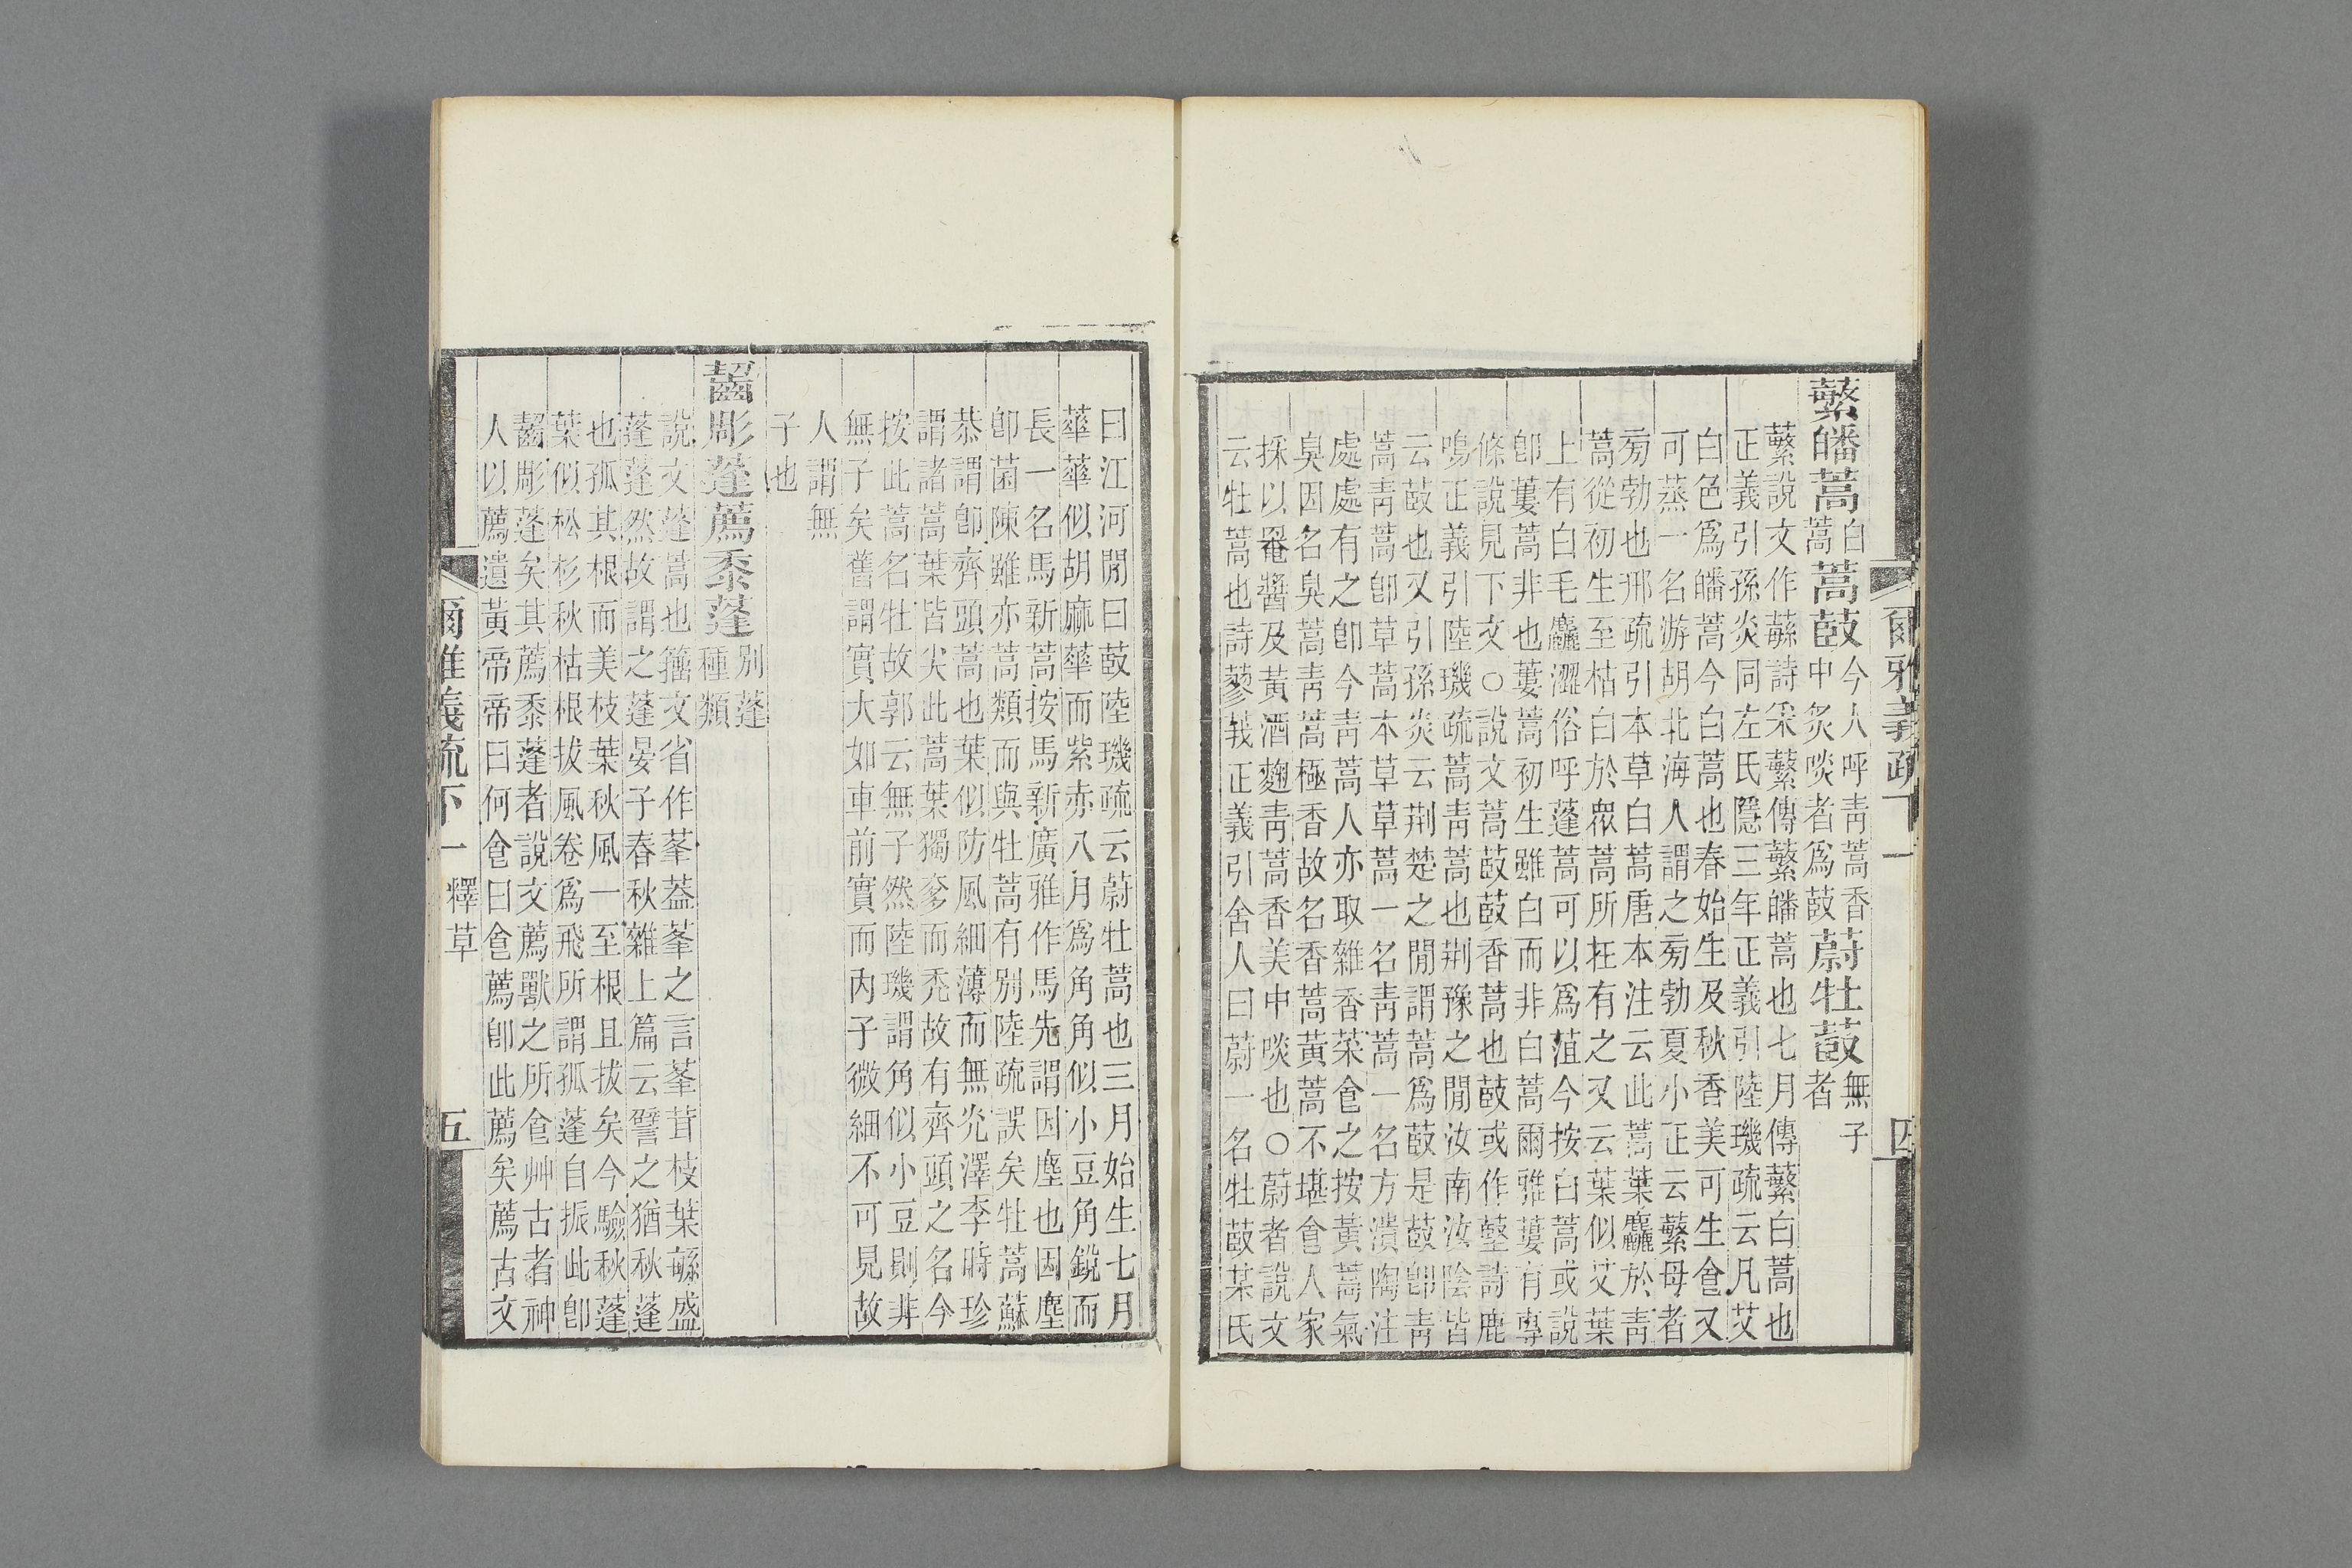 爾雅義疏下一
四
蘩皤蒿
白
蒿
蒿菣
今人呼靑蒿香
中炙啖者爲菣
蔚牡菣
無子
者
蘩說文作蘇詩采蘩傳蘩皤蒿也七月傳蘩白蒿也
正義引孫炎同左氏隱三年正義引陸璣疏云凡艾
白色爲皤蒿今白蒿也春始生及秋香美可生食又
可蒸一名游胡北海人謂之旁勃夏小正云蘩母者
旁勃也邢疏引本草白蒿唐本注云此蒿葉麤於靑
蒿從初生至枯白於衆蒿所在有之又云葉似艾葉
上有白毛麤澀俗呼蓬蒿可以爲菹今按白蒿或說
卽蔞蒿非也蔞蒿初生雖白而非白蒿爾雅蔞有專
條說見下文○說文蒿菣菣香蒿也菣或作䕃詩鹿
鳴正義引陸璣疏蒿靑蒿也荆豫之閒汝南汝陰皆
云菣也又引孫炎云荆楚之閒謂蒿爲菣是菣卽靑
蒿靑蒿卽草蒿本草草蒿一名靑蒿一名方潰陶注
處處有之卽今靑蒿人亦取雜香菜食之按黃蒿氣
臭因名臭蒿靑蒿極香故名香蒿黃蒿不堪食人家
採以罨醬及黃酒麴靑蒿香美中啖也○蔚者說文
云牡蒿也詩蓼莪正義引舍人曰蔚一名牡菣某氏
曰江河閒曰菣陸璣疏云蔚牡蒿也三月始生七月
華華似胡麻華而紫赤八月爲角角似小豆角銳而
長一名馬新蒿按馬新廣雅作馬先謂因塵也因塵
卽菌陳雖亦蒿類而與牡蒿有別陸疏誤矣牡蒿蘇
恭謂卽齊頭蒿也葉似防風細薄而無光澤李時珍
謂諸蒿葉皆尖此蒿葉獨奓而禿故有齊頭之名今
按此蒿名牡故郭云無子然陸璣謂角似小豆則非
無子矣舊謂實大如車前實而內子微細不可見故
人謂無
子也
齧彫蓬薦黍蓬
別蓬
種類
說文蓬蒿也籒文省作莑葢莑之言莑茸枝葉蘇盛
蓬蓬然故謂之蓬晏子春秋雜上篇云譬之猶秋蓬
也孤其根而美枝葉秋風一至根且拔矣今驗秋蓬
葉似松杉秋枯根拔風卷爲飛所謂孤蓬自振此卽
齧彫蓬矣其薦黍蓬者說文薦獸之所食艸古者神
人以薦遺黃帝帝曰何食曰食薦卽此薦矣薦古文
爾雅義疏下一
釋草
五